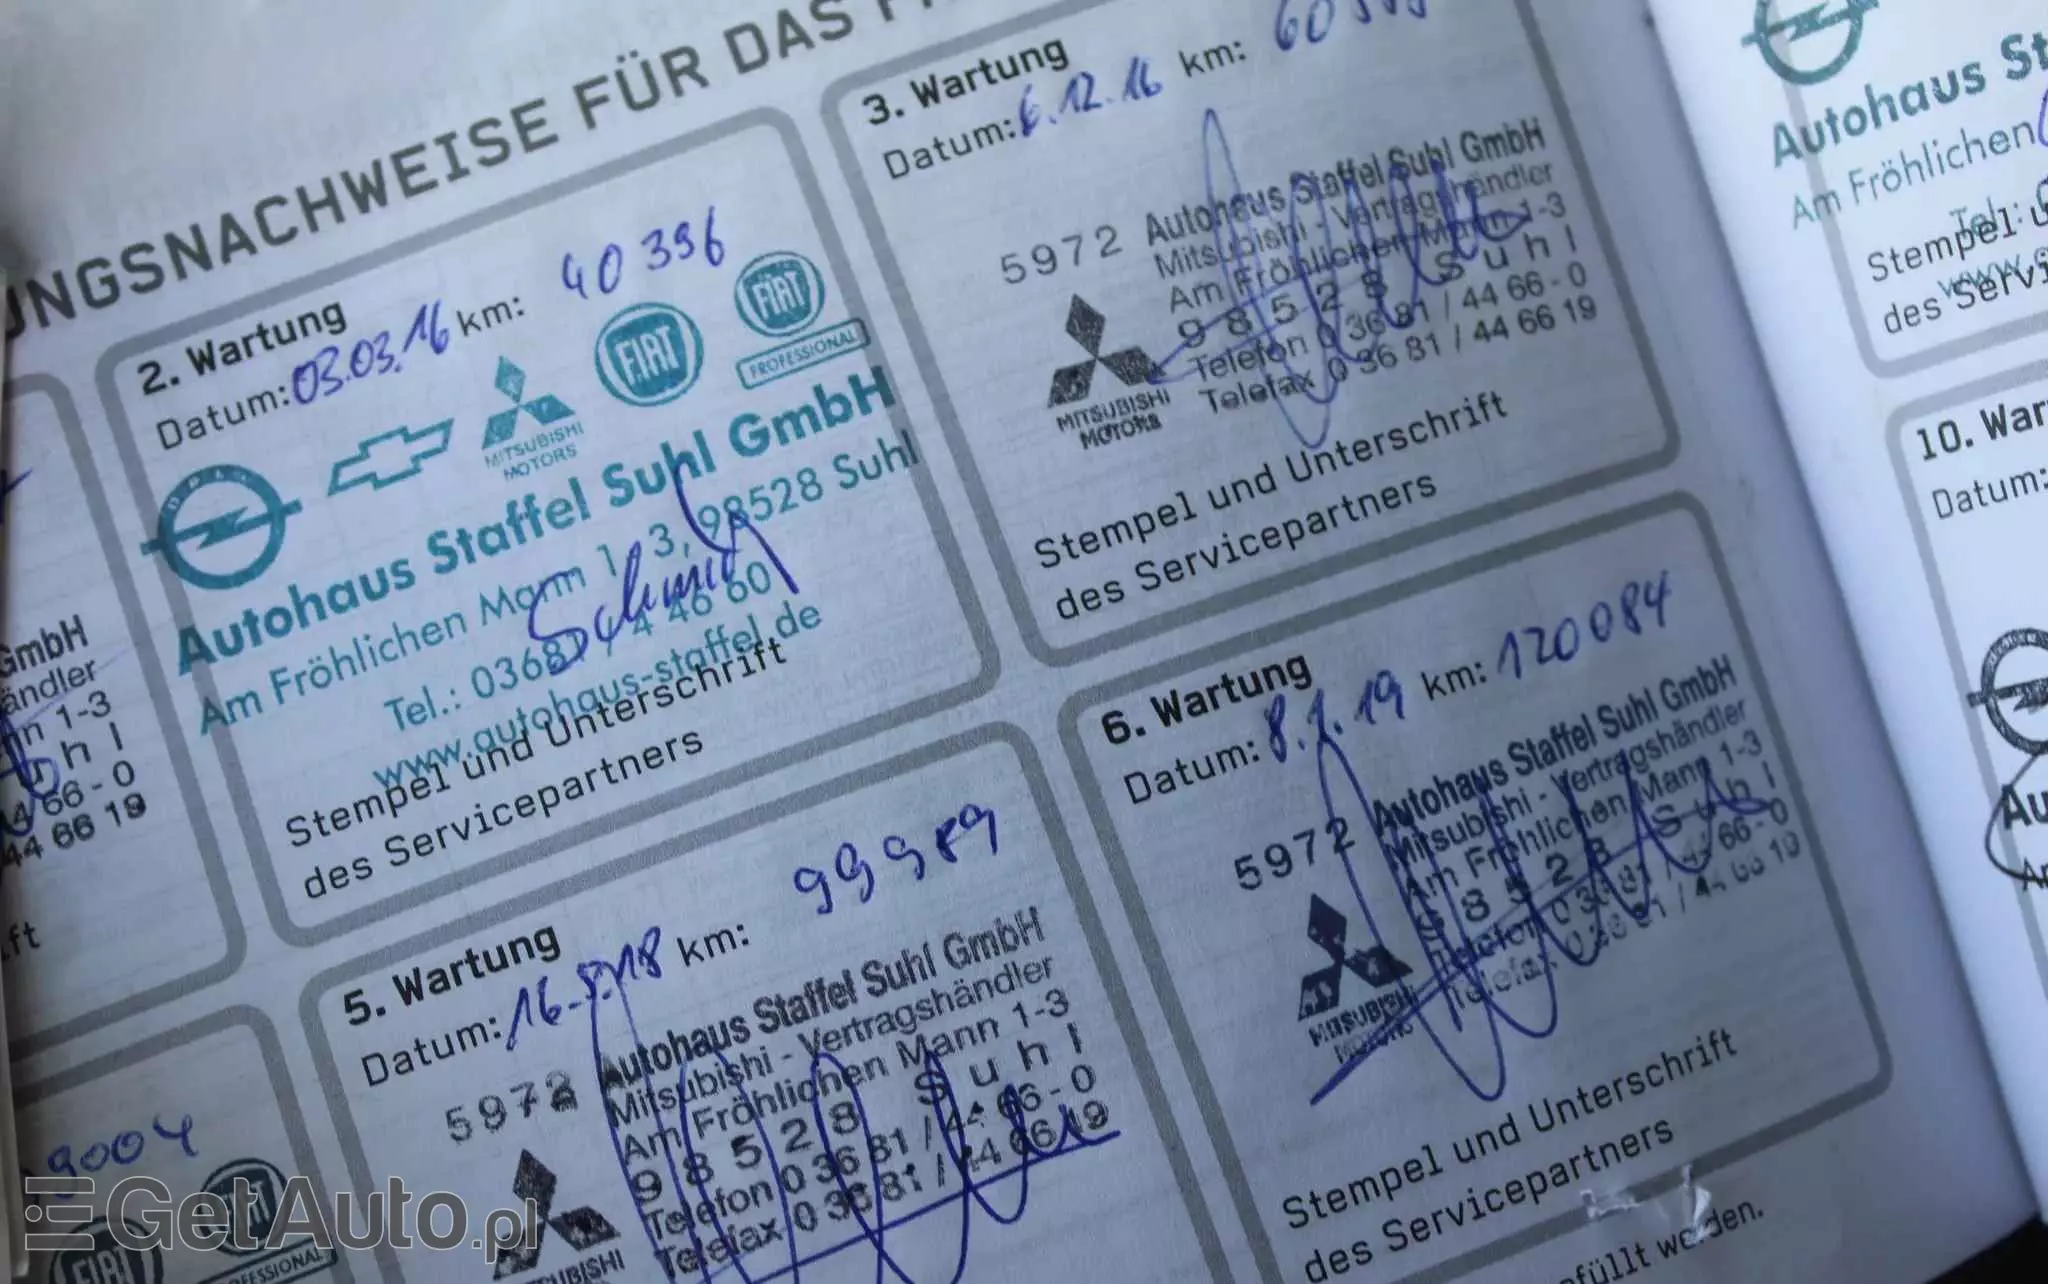 UNGSNACHWEISE FÜR DAS
2. Wartung
Datum: 03.03.16 km: 40 396
OPEL
MITSUBISHI
MOTORS
FIAT
FIAT
PROFESSIONAL
Autohaus Staffel Suhl GmbH
Am Fröhlichen Mann 1 3, 98528 Suhl
Tel.: 03681 4 46 60
www.autohaus-staffel.de
Stempel und Unterschrift
des Servicepartners
3. Wartung
Datum: 6.12.16 km:
5972
Autohaus Staffel Suhl GmbH
Mitsubishi - Vertragshändler
Am Fröhlichen Mann 1-3
98528 Suhl
Telefon 0 36 81 / 44 66 - 0
Telefax 0 36 81 / 44 66 19
MITSUBISHI
MOTORS
Stempel und Unterschrift
des Servicepartners
GmbH
ändler
nn 1-3
uhl
4 66 - 0
44 66 19
ft
9004
FIAT
FIAT
5. Wartung
Datum: 16.5.18 km: 99989
5972
Autohaus Staffel Suhl GmbH
Mitsubishi - Vertragshändler
Am Fröhlichen Mann 1-3
98528 Suhl
Telefon 0 36 81 / 44 66 - 0
Telefax 0 36 81 / 44 66 19
MITSUBISHI
6. Wartung
Datum: 8.1.19 km: 120084
5972
Autohaus Staffel Suhl GmbH
Mitsubishi - Vertragshändler
Am Fröhlichen Mann 1-3
98528 Suhl
Telefon 0 36 81 / 44 66 - 0
Telefax 0 36 81 / 44 66 19
MITSUBISHI
MOTORS
Stempel und Unterschrift
des Servicepartners
efüllt werden.
Autohaus St
Am Fröhlichen
Tel.:
Stempel u
www.
des Servi
10. War
Datum:
Au
GetAuto.pl